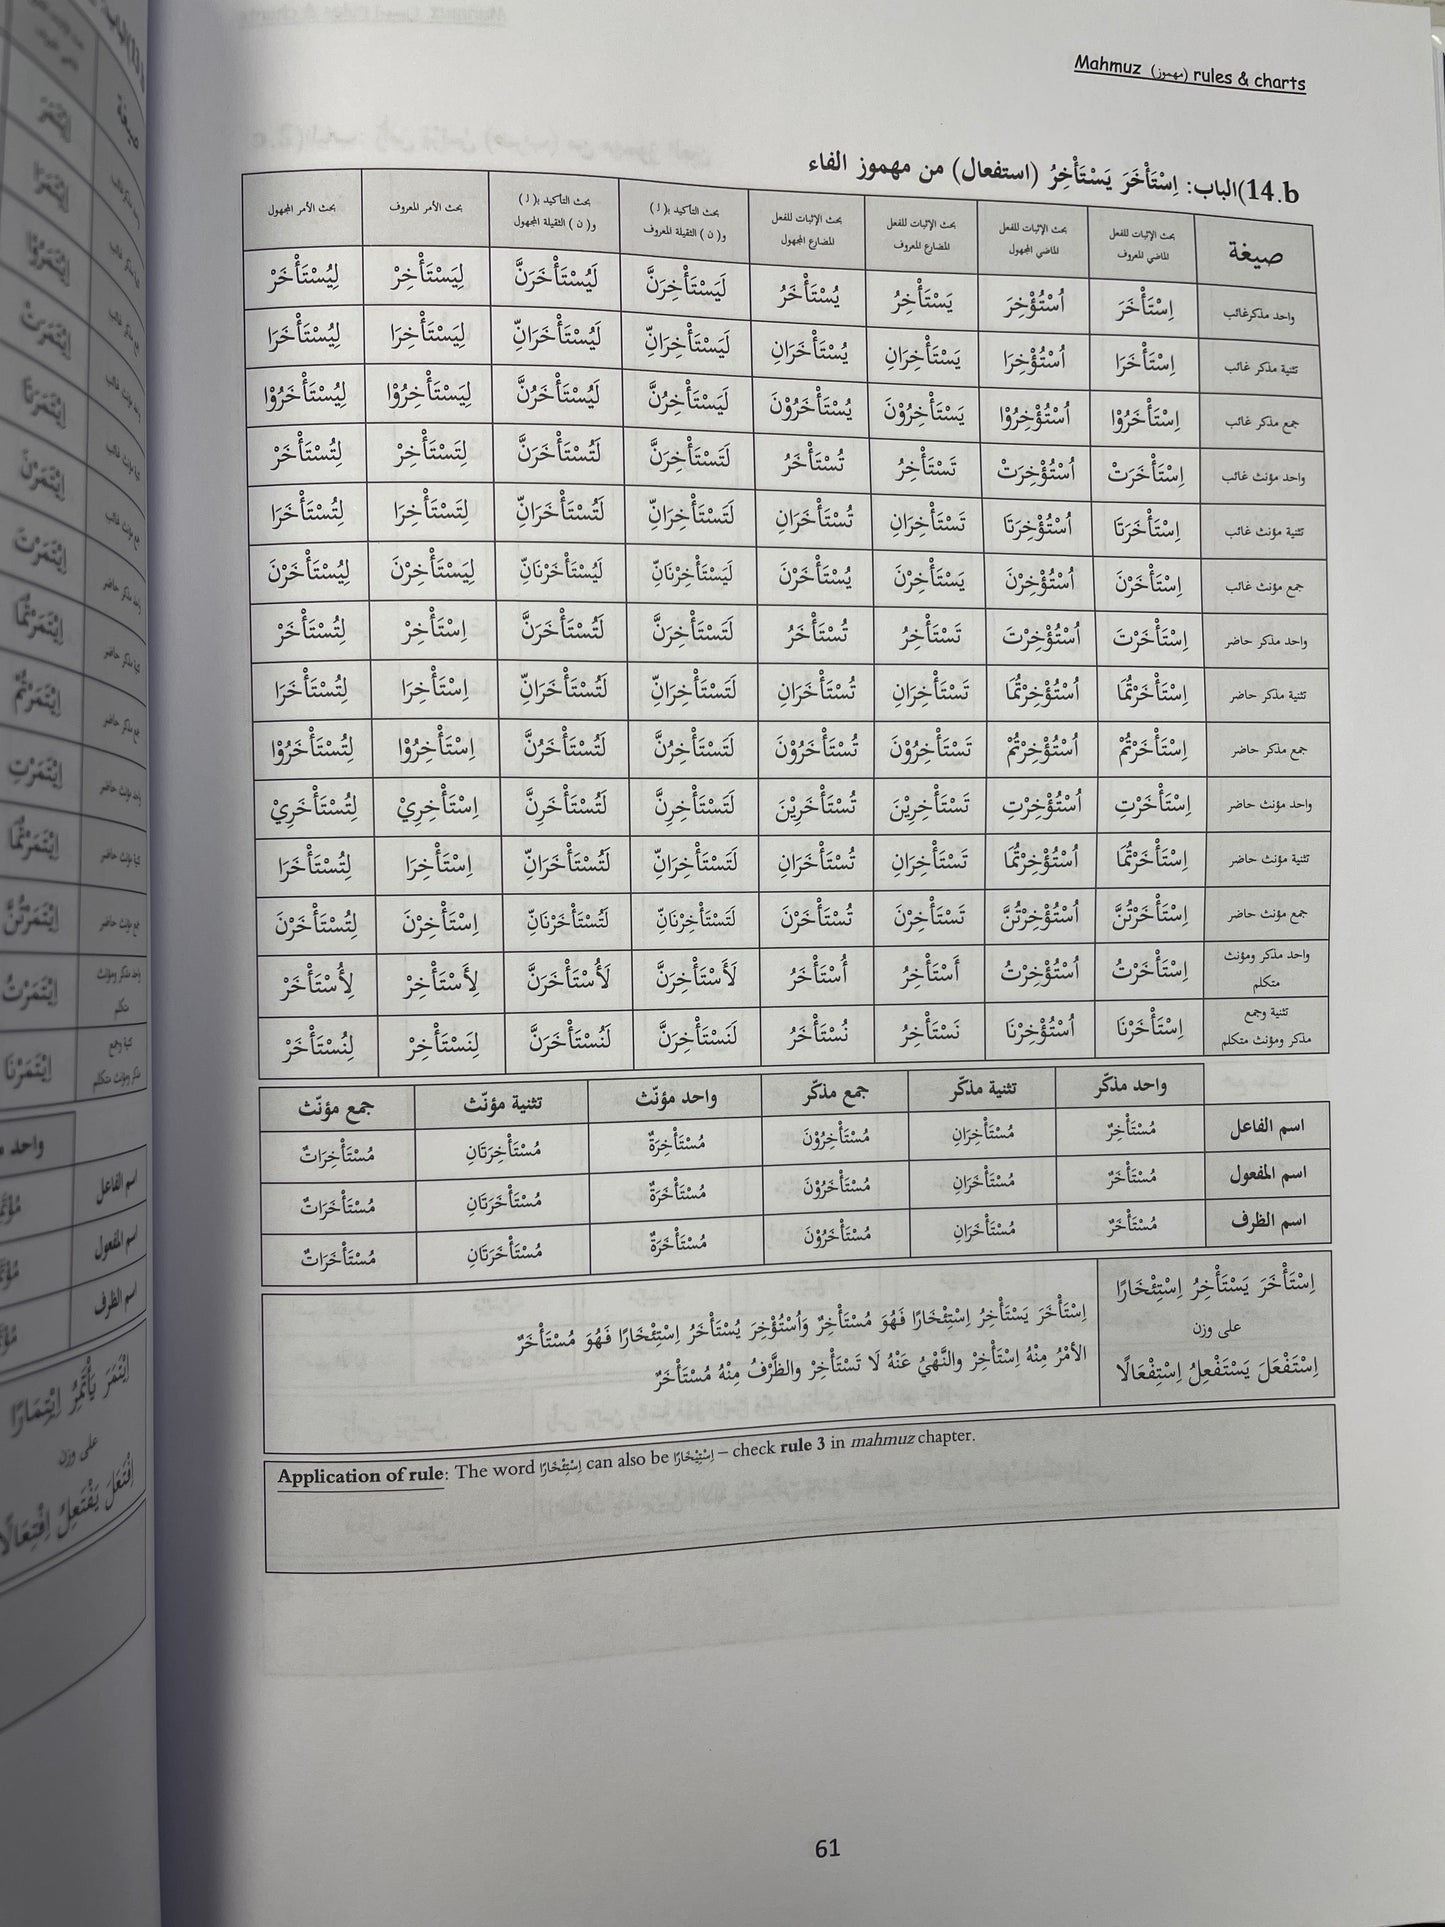 Mahmuz (مهموز) rules & charts
14.b)الباب: اِسْتَأْخَرَ يَسْتَأْخِرُ (استفعال) من مهموز الفاء
صيغة بحث الإثبات للفعل الماضي المعروف بحث الإثبات للفعل الماضي المجهول بحث الإثبات للفعل المضارع المعروف بحث الإثبات للفعل المضارع المجهول بحث التأكيد بـ( لَ ) و( نّ ) الثقيلة المعروف بحث التأكيد بـ( لَ ) و( نّ ) الثقيلة المجهول بحث الأمر المعروف بحث الأمر المجهول
واحد مذكرغائب اِسْتَأْخَرَ اُسْتُؤْخِرَ يَسْتَأْخِرُ يُسْتَأْخَرُ لَيَسْتَأْخِرَنَّ لَيُسْتَأْخَرَنَّ لِيَسْتَأْخِرْ لِيُسْتَأْخَرْ
تثنية مذكر غائب اِسْتَأْخَرَا اُسْتُؤْخِرَا يَسْتَأْخِرَانِ يُسْتَأْخَرَانِ لَيَسْتَأْخِرَانِّ لَيُسْتَأْخَرَانِّ لِيَسْتَأْخِرَا لِيُسْتَأْخَرَا
جمع مذكر غائب اِسْتَأْخَرُوْا اُسْتُؤْخِرُوْا يَسْتَأْخِرُوْنَ يُسْتَأْخَرُوْنَ لَيَسْتَأْخِرُنَّ لَيُسْتَأْخَرُنَّ لِيَسْتَأْخِرُوْا لِيُسْتَأْخَرُوْا
واحد مؤنث غائب اِسْتَأْخَرَتْ اُسْتُؤْخِرَتْ تَسْتَأْخِرُ تُسْتَأْخَرُ لَتَسْتَأْخِرَنَّ لَتُسْتَأْخَرَنَّ لِتَسْتَأْخِرْ لِتُسْتَأْخَرْ
تثنية مؤنث غائب اِسْتَأْخَرَتَا اُسْتُؤْخِرَتَا تَسْتَأْخِرَانِ تُسْتَأْخَرَانِ لَتَسْتَأْخِرَانِّ لَتُسْتَأْخَرَانِّ لِتَسْتَأْخِرَا لِتُسْتَأْخَرَا
جمع مؤنث غائب اِسْتَأْخَرْنَ اُسْتُؤْخِرْنَ يَسْتَأْخِرْنَ يُسْتَأْخَرْنَ لَيَسْتَأْخِرْنَانِّ لَيُسْتَأْخَرْنَانِّ لِيَسْتَأْخِرْنَ لِيُسْتَأْخَرْنَ
واحد مذكر حاضر اِسْتَأْخَرْتَ اُسْتُؤْخِرْتَ تَسْتَأْخِرُ تُسْتَأْخَرُ لَتَسْتَأْخِرَنَّ لَتُسْتَأْخَرَنَّ اِسْتَأْخِرْ لِتُسْتَأْخَرْ
تثنية مذكر حاضر اِسْتَأْخَرْتُمَا اُسْتُؤْخِرْتُمَا تَسْتَأْخِرَانِ تُسْتَأْخَرَانِ لَتَسْتَأْخِرَانِّ لَتُسْتَأْخَرَانِّ اِسْتَأْخِرَا لِتُسْتَأْخَرَا
جمع مذكر حاضر اِسْتَأْخَرْتُمْ اُسْتُؤْخِرْتُمْ تَسْتَأْخِرُوْنَ تُسْتَأْخَرُوْنَ لَتَسْتَأْخِرُنَّ لَتُسْتَأْخَرُنَّ اِسْتَأْخِرُوْا لِتُسْتَأْخَرُوْا
واحد مؤنث حاضر اِسْتَأْخَرْتِ اُسْتُؤْخِرْتِ تَسْتَأْخِرِيْنَ تُسْتَأْخَرِيْنَ لَتَسْتَأْخِرِنَّ لَتُسْتَأْخَرِنَّ اِسْتَأْخِرِيْ لِتُسْتَأْخَرِيْ
تثنية مؤنث حاضر اِسْتَأْخَرْتُمَا اُسْتُؤْخِرْتُمَا تَسْتَأْخِرَانِ تُسْتَأْخَرَانِ لَتَسْتَأْخِرَانِّ لَتُسْتَأْخَرَانِّ اِسْتَأْخِرَا لِتُسْتَأْخَرَا
جمع مؤنث حاضر اِسْتَأْخَرْتُنَّ اُسْتُؤْخِرْتُنَّ تَسْتَأْخِرْنَ تُسْتَأْخَرْنَ لَتَسْتَأْخِرْنَانِّ لَتُسْتَأْخَرْنَانِّ اِسْتَأْخِرْنَ لِتُسْتَأْخَرْنَ
واحد مذكر ومؤنث متكلم اِسْتَأْخَرْتُ اُسْتُؤْخِرْتُ أَسْتَأْخِرُ أُسْتَأْخَرُ لَأَسْتَأْخِرَنَّ لَأُسْتَأْخَرَنَّ لِأَسْتَأْخِرْ لِأُسْتَأْخَرْ
تثنية وجمع مذكر ومؤنث متكلم اِسْتَأْخَرْنَا اُسْتُؤْخِرْنَا نَسْتَأْخِرُ نُسْتَأْخَرُ لَنَسْتَأْخِرَنَّ لَنُسْتَأْخَرَنَّ لِنَسْتَأْخِرْ لِنُسْتَأْخَرْ
واحد مذكّر تثنية مذكّر جمع مذكّر واحد مؤنّث تثنية مؤنّث جمع مؤنّث
اسم الفاعل مُسْتَأْخِرٌ مُسْتَأْخِرَانِ مُسْتَأْخِرُوْنَ مُسْتَأْخِرَةٌ مُسْتَأْخِرَتَانِ مُسْتَأْخِرَاتٌ
اسم المفعول مُسْتَأْخَرٌ مُسْتَأْخَرَانِ مُسْتَأْخَرُوْنَ مُسْتَأْخَرَةٌ مُسْتَأْخَرَتَانِ مُسْتَأْخَرَاتٌ
اسم الظرف مُسْتَأْخَرٌ مُسْتَأْخَرَانِ مُسْتَأْخَرُوْنَ مُسْتَأْخَرَةٌ مُسْتَأْخَرَتَانِ مُسْتَأْخَرَاتٌ
اِسْتَأْخَرَ يَسْتَأْخِرُ اِسْتِئْخَارًا
على وزن
اِسْتَفْعَلَ يَسْتَفْعِلُ اِسْتِفْعَالًا
اِسْتَأْخَرَ يَسْتَأْخِرُ اِسْتِئْخَارًا فَهُوَ مُسْتَأْخِرٌ وَاُسْتُؤْخِرَ يُسْتَأْخَرُ اِسْتِئْخَارًا فَهُوَ مُسْتَأْخَرٌ
الأمْرُ مِنْهُ اِسْتَأْخِرْ والنَّهْيُ عَنْهُ لَا تَسْتَأْخِرْ والظَّرْفُ مِنْهُ مُسْتَأْخَرٌ
Application of rule: The word اِسْتِئْخَارًا can also be اِسْتِيْخَارًا – check rule 3 in mahmuz chapter.
61